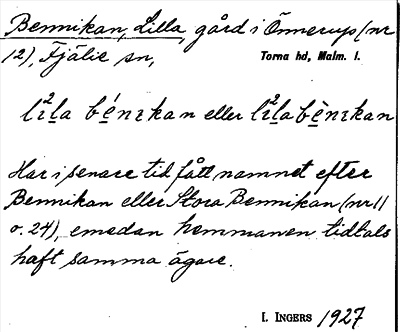 Bennikan, Lilla, gård i Önnerup (nr
12), Fjälie sn,
Torna hd, Malm. l.
lı²la bénıkan eller lı²la bènıkan
Har i senare tid fått namnet efter
Bennikan eller Stora Bennikan (nr 11
o. 24), emedan hemmanen tidtals
haft samma ägare.
I. INGERS 1927